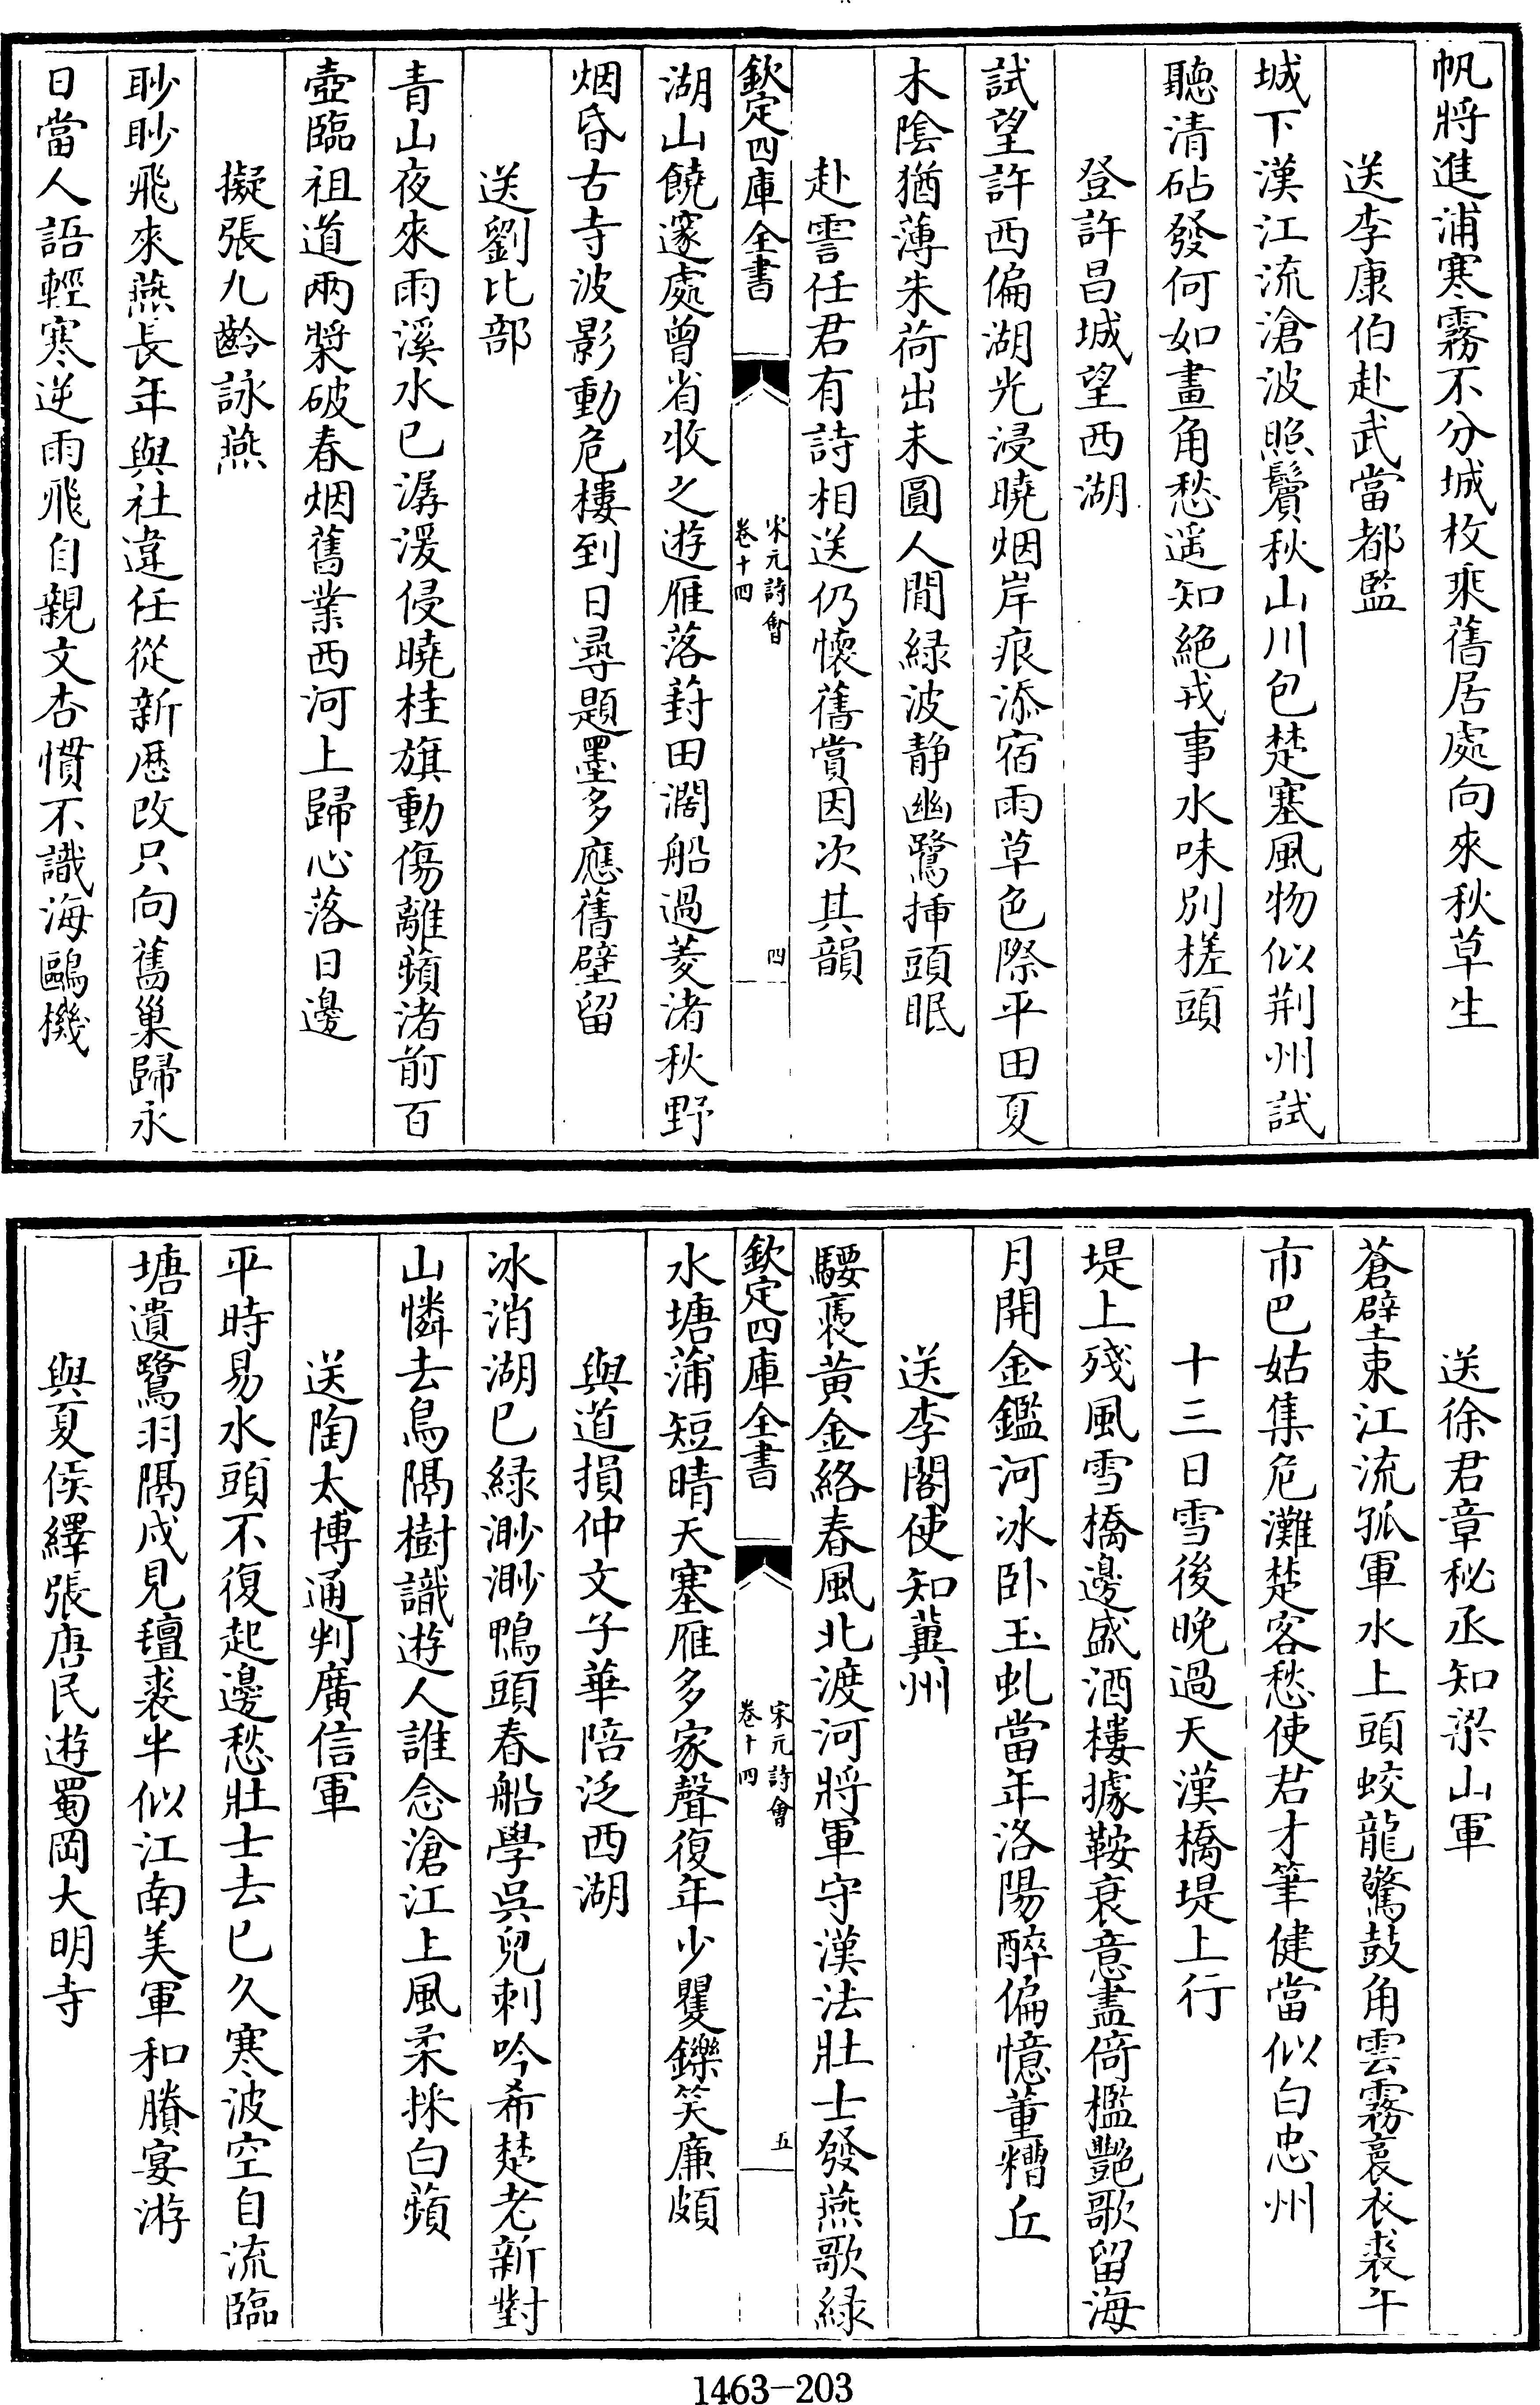 帆將進浦寒霧不分城枚乘舊居處向來秋草生
送李康伯赴武當都監
城下漢江流滄波照鬢秋山川包楚塞風物似荆州試
聽清砧發何如畫角愁遥知絶戎事水味别槎頭
登許昌城望西湖
試望許西偏湖光浸曉烟岸痕添宿雨草色際平田夏
木陰猶薄朱荷出未圓人閒緑波静幽鷺挿頭眠
赴霅任君有詩相送仍懷舊賞因次其韻
欽定四庫全書
宋元詩會
卷十四
四
湖山饒邃處曾省牧之遊雁落葑田濶船過菱渚秋野
烟昏古寺波影動危樓到日尋題墨多應舊壁留
送劉比部
青山夜來雨溪水已潺湲侵曉桂旗動傷離蘋渚前百
壺臨祖道兩槳破春烟舊業西河上歸心落日邊
擬張九齡詠燕
眇眇飛來燕長年與社違任從新厯改只向舊巢歸永
日當人語輕寒逆雨飛自親文杏慣不識海鷗機
送徐君章秘丞知梁山軍
蒼壁束江流孤軍水上頭蛟龍驚鼓角雲霧裛衣裘午
市巴姑集危灘楚客愁使君才筆健當似白忠州
十三日雪後晚過天漢橋堤上行
堤上殘風雪橋邊盛酒樓據鞍衰意盡倚檻艷歌留海
月開金鑑河冰卧玉虬當年洛陽醉偏憶董糟丘
送李閣使知冀州
騕褭黄金絡春風北渡河將軍守漢法壯士發燕歌緑
欽定四庫全書
宋元詩會
卷十四
五
水塘蒲短晴天塞雁多家聲復年少矍鑠笑廉頗
與道損仲文子華陪泛西湖
冰消湖已緑渺渺鴨頭春船學吳兒刺吟希楚老新對
山憐去鳥隔樹識遊人誰念滄江上風柔採白蘋
送陶太博通判廣信軍
平時易水頭不復起邊愁壯士去已久寒波空自流臨
塘遺鷺羽隔戍見氊裘半似江南美軍和賸宴游
與夏侯繹張唐民遊蜀岡大明寺
1463-203